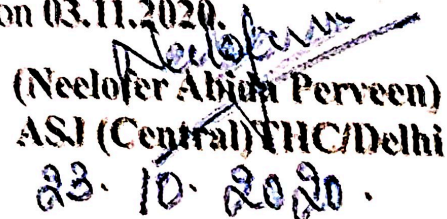 on 03.11.2020.
Neelofer
(Neelofer Abida Perveen)
ASJ (Central)THC/Delhi
23. 10. 2020.